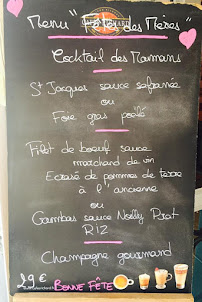 Menu "Fêtes des Mères"
Cocktail des Mamans
St Jacques sauce safranée
ou
Foie gras poêlé
Filet de boeuf sauce
marchand de vin
Ecrasé de pommes de terre
à l'ancienne
ou
Gambas sauce Noilly Prat
RIZ
Champagne gourmand
29€ BONNE FÊTE